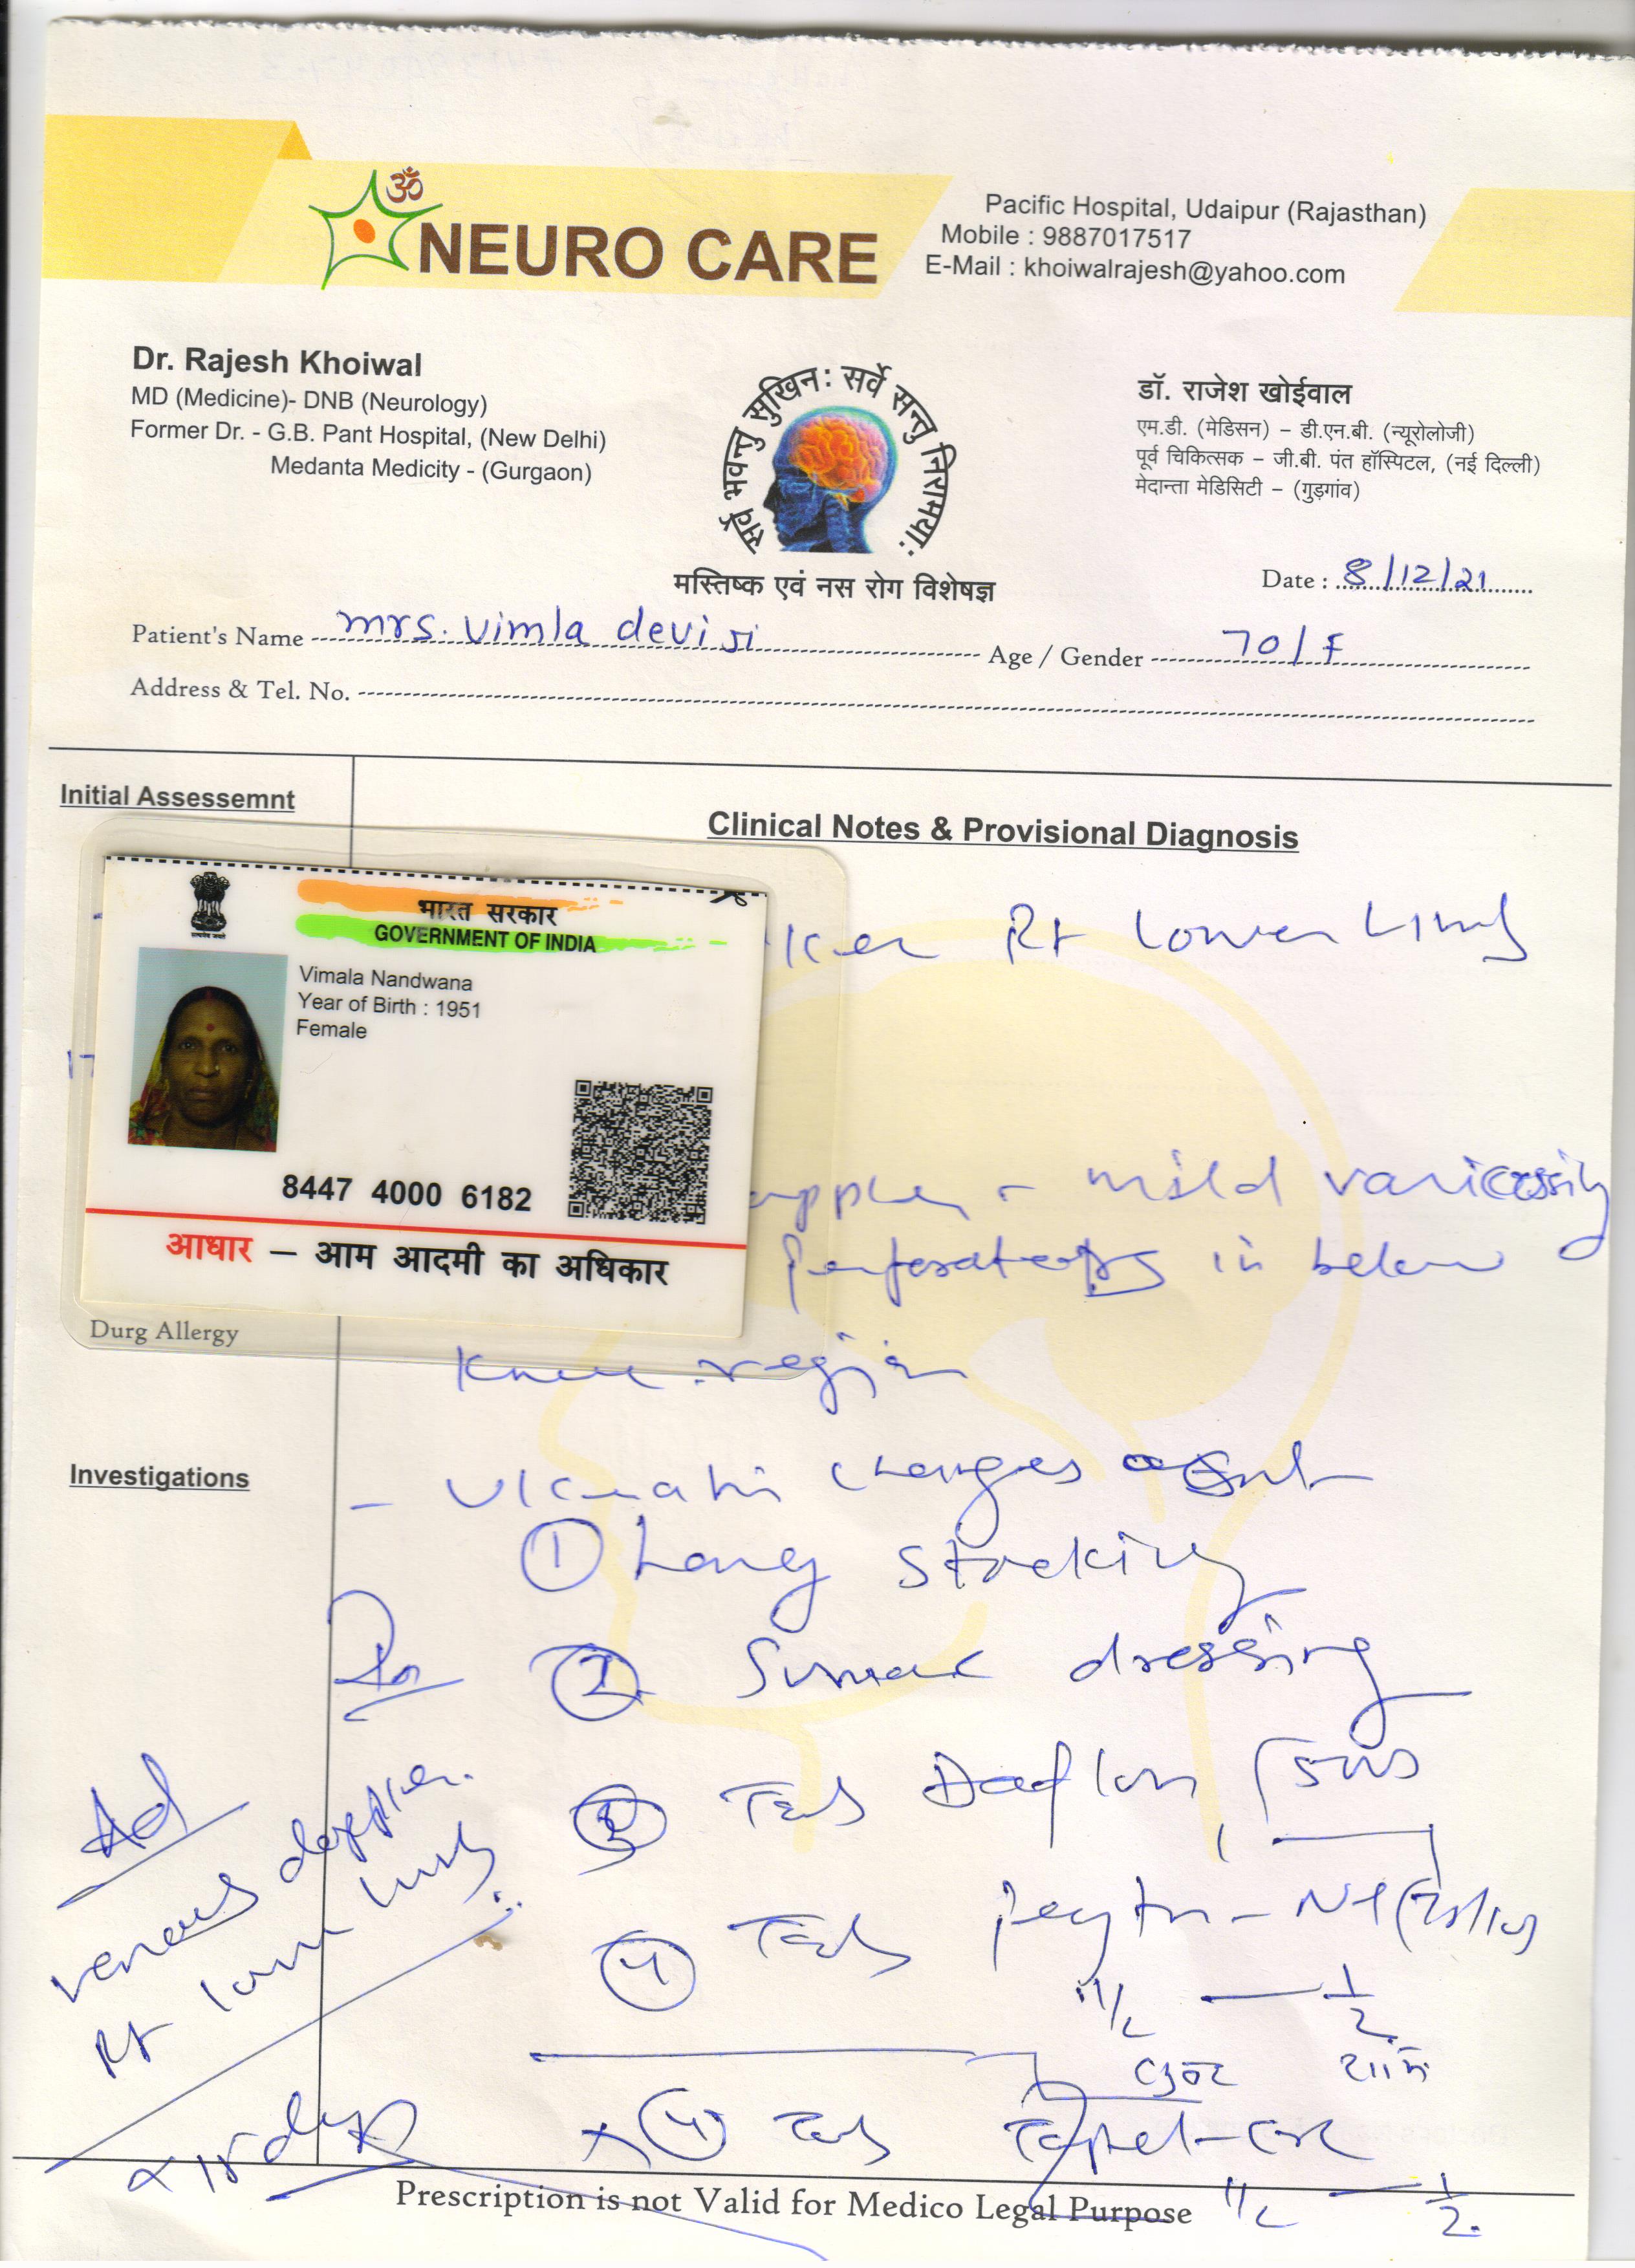 ॐ
NEURO CARE
Pacific Hospital, Udaipur (Rajasthan)
Mobile : 9887017517
E-Mail : khoiwalrajesh@yahoo.com
Dr. Rajesh Khoiwal
MD (Medicine)- DNB (Neurology)
Former Dr. - G.B. Pant Hospital, (New Delhi)
Medanta Medicity - (Gurgaon)
सर्वे भवन्तु सुखिन: सर्वे सन्तु निरामया:
मस्तिष्क एवं नस रोग विशेषज्ञ
डॉ. राजेश खोईवाल
एम.डी. (मेडिसन) – डी.एन.बी. (न्यूरोलोजी)
पूर्व चिकित्सक – जी.बी. पंत हॉस्पिटल, (नई दिल्ली)
मेदान्ता मेडिसिटी – (गुड़गांव)
Date : 8/12/21
Patient's Name mrs. vimla devi ji Age / Gender 70/F
Address & Tel. No.
Initial Assessemnt
Clinical Notes & Provisional Diagnosis
भारत सरकार
GOVERNMENT OF INDIA
Vimala Nandwana
Year of Birth : 1951
Female
8447 4000 6182
आधार – आम आदमी का अधिकार
Rt lower limb
- mild varicosity
Perforators in below
Durg Allergy
knee region
Investigations
- changes
① Long stocking
Rx ② dressing
③ Tab Daflon
④ Tab
1/2 — 1/2
Ad
venous doppler
Rt lower limb
④ Tab
1/2 — 1/2
Prescription is not Valid for Medico Legal Purpose